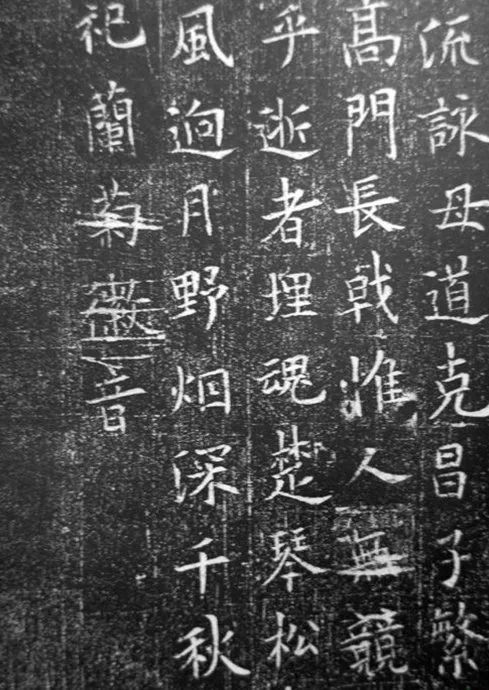 流詠母道克昌子繁
高門長戟惟人無競
乎逝者埋魂楚琴松
風逈月野烟深千秋
祀蘭菊徽音